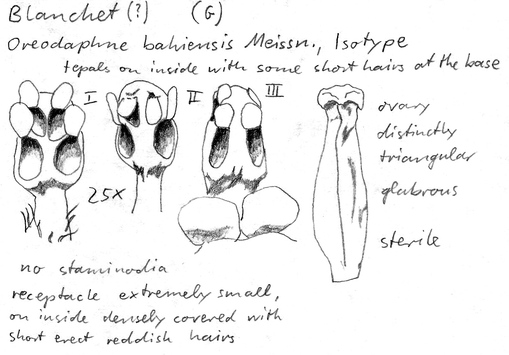 Blanchet (?) (G)
Oreodaphne bahiensis Meissn., Isotype
tepals on inside with some short hairs at the base
I II III
25x
ovary
distinctly
triangular
glabrous
sterile
no staminodia
receptacle extremely small,
on inside densely covered with
short erect reddish hairs